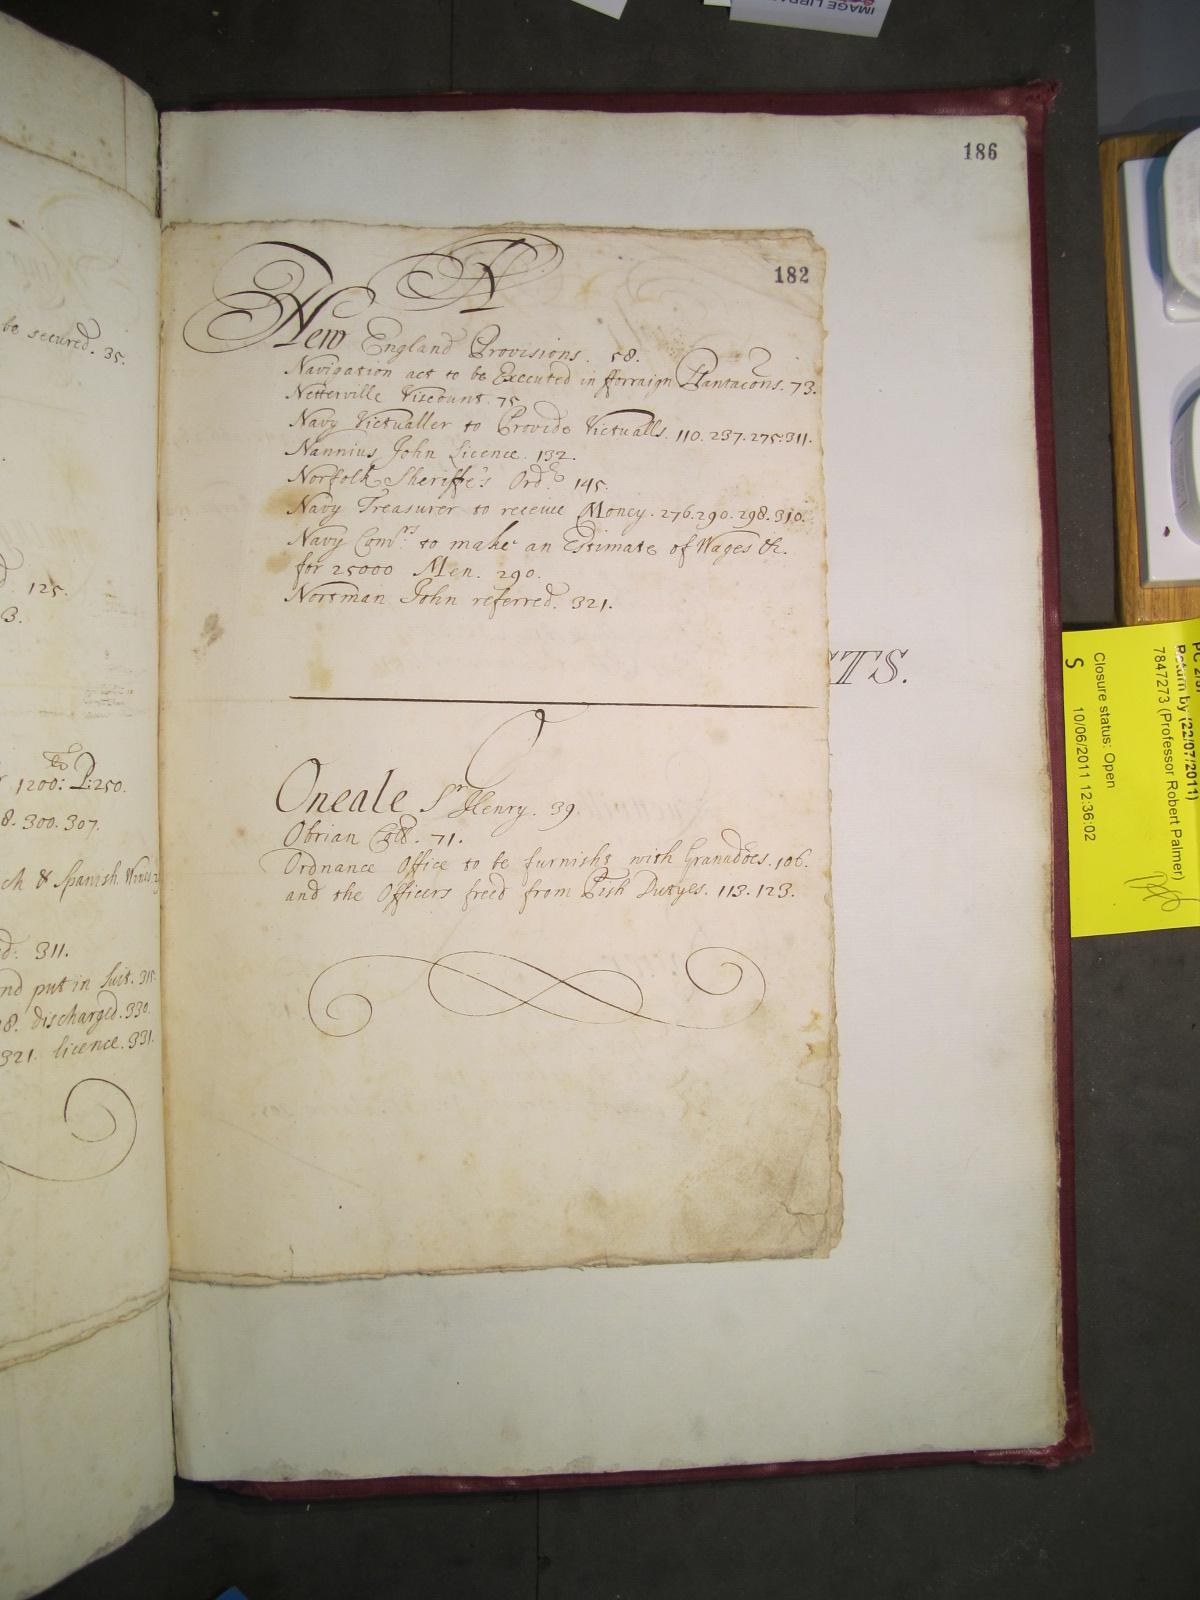 IMAGE LIBRA
186
182
N
New England Provisions. 58.
Navigation act to be Executed in fforraign Plantacons. 73.
Netterville Viscount. 75
Navy Victualler to Provide Victualls. 110. 237. 275. 311.
Nannius John Licence. 132.
Norfolk Sheriffe's Ordr. 145.
Navy Treasurer to receive Money. 276. 290. 298. 310.
Navy Comrs. to make an Estimate of Wages &c.
for 25000 Men. 290.
Norman John referred. 321.
O
Oneale Sr Henry. 39.
Obrian Coll. 71.
Ordnance Office to be furnisht with Granadoes. 106.
and the Officers freed from Pish Dutyes. 113. 123.
TS.
be secured. 35.
125.
3.
1200: P:250.
8. 300. 307.
ch & Spanish Wines
d: 311.
nd put in Suit. 315
8. discharged. 330.
321. licence. 331.
Return by (22/07/2011)
7847273 (Professor Robert Palmer)
Closure status: Open
S 10/06/2011 12:36:02